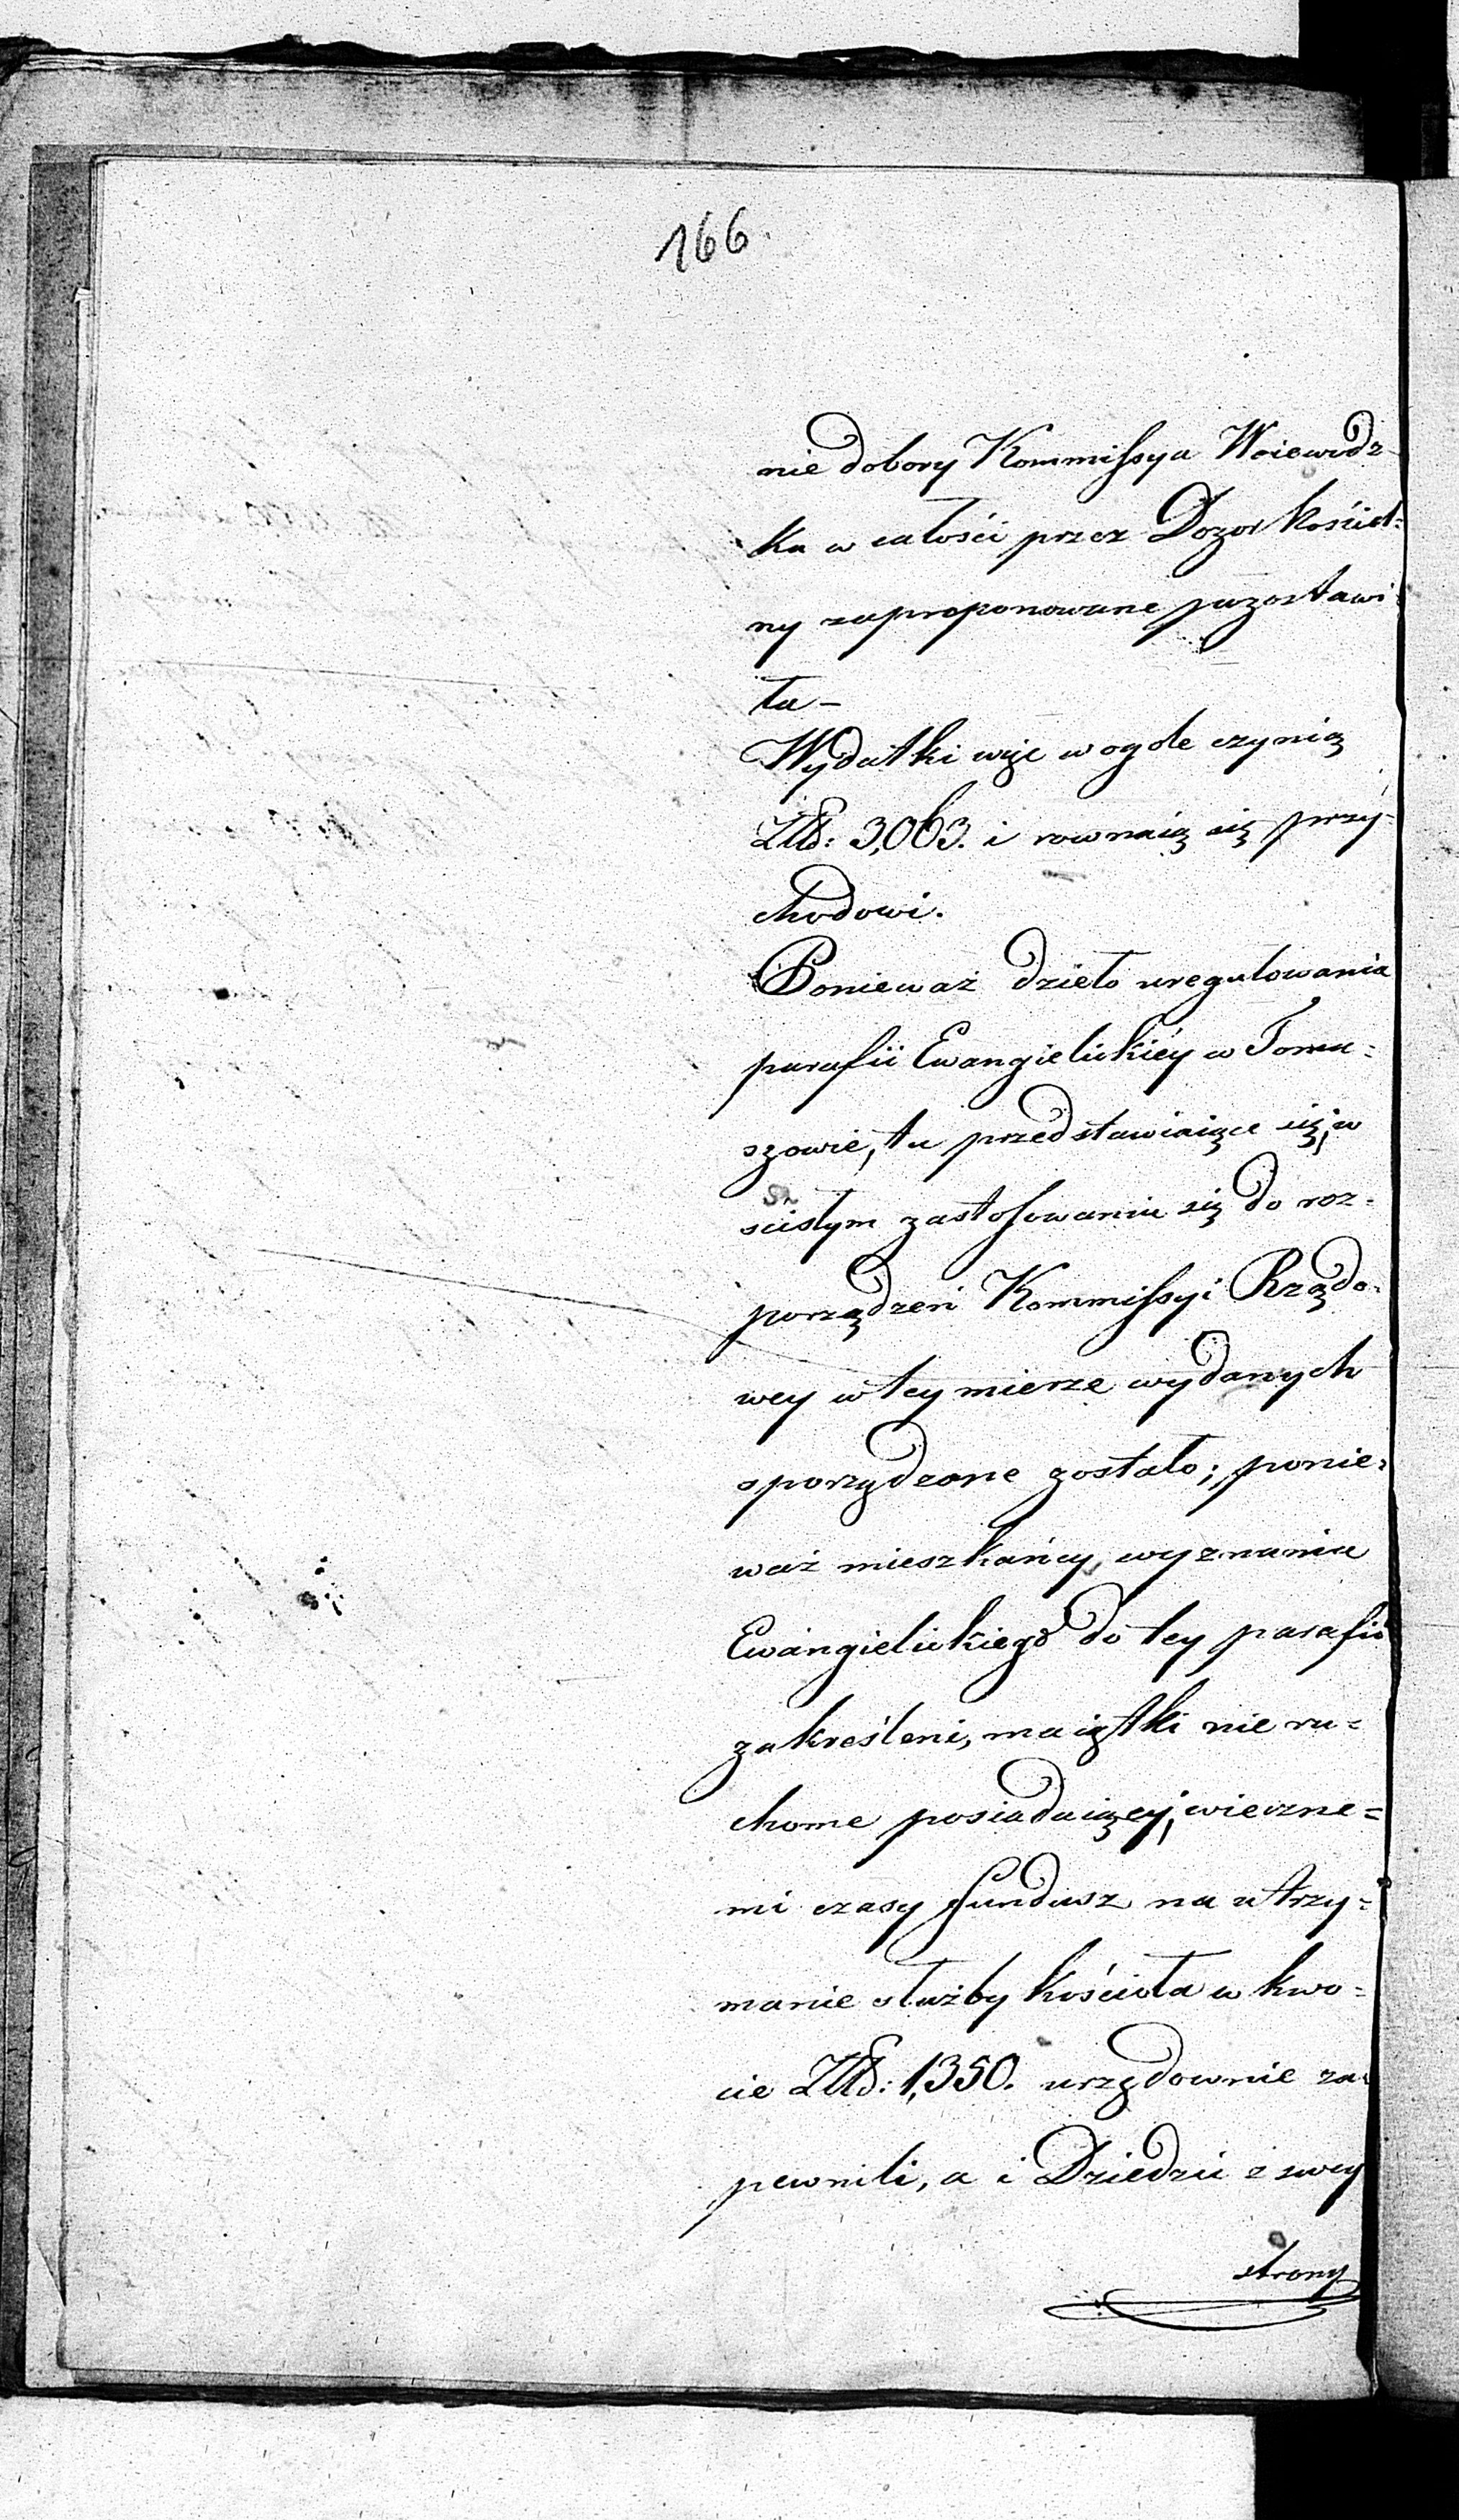 166.
nie dobory Kommissya Woiewodz-
ka w całości przez Dozor Kościel=
ny zaproponowane pozostawi=
ła –
Wydatki więc w ogole czynią
Złd: 3,063. i rownaią się przy=
chodowi.
Ponieważ dzieło uregulowania
parafii Ewangielickiéy w Toma=
szowie, tu przedstawiaiące się, w
ścisłym zastosowaniu się do roz=
porządzeń Kommissyi Rządo=
wey w tey mierze wydanych
sporządzone zostało; ponie=
waż mieszkańcy, wyznania
Ewangielickiego do tey parafii
zakreśleni, maiątki nie ru=
chome posiadaiący, wieczne=
mi czasy fundusz na utrzy=
manie służby kościoła w kwo=
cie Złd: 1,350. urzędownie za=
pewnili, a i Dziedzic z swey
strony